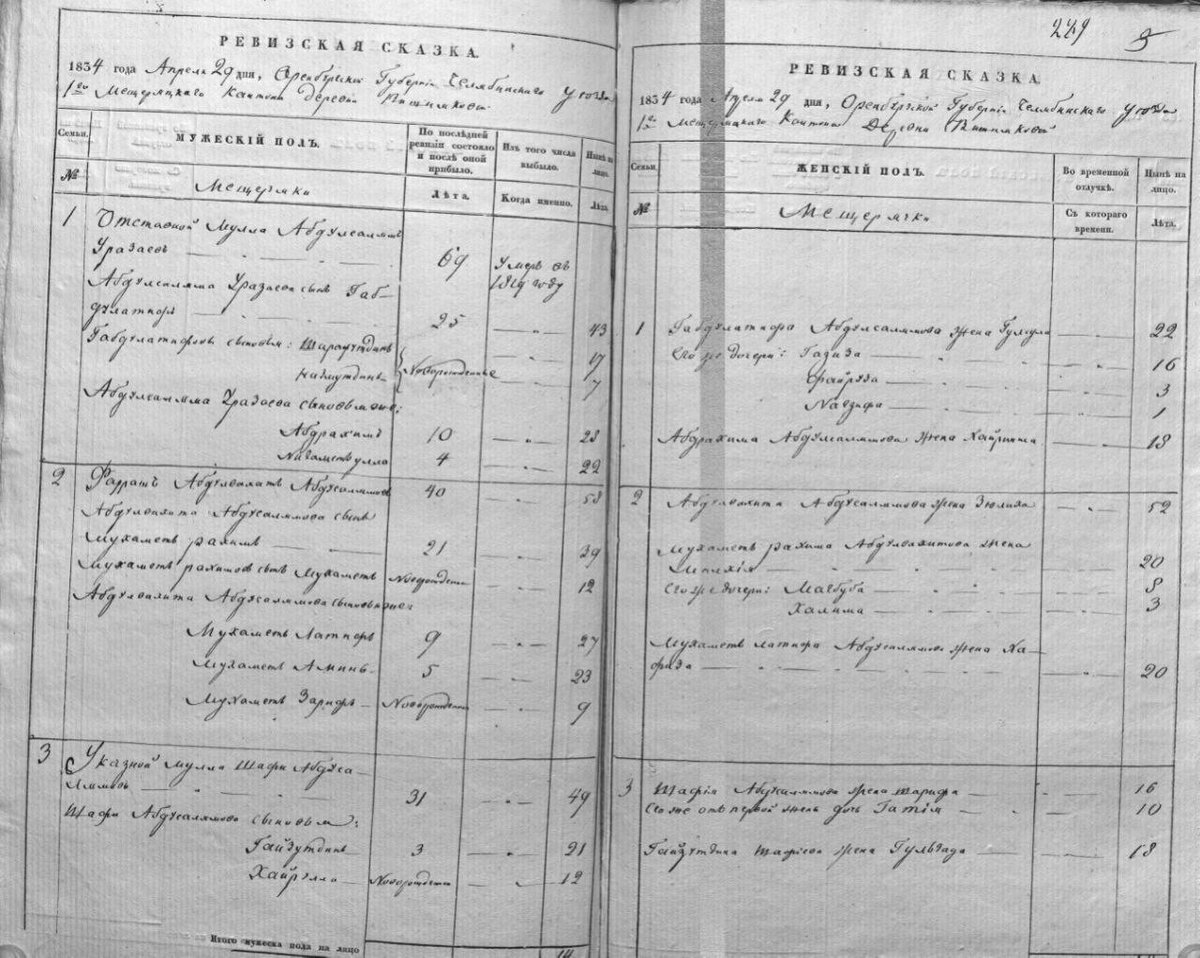 РЕВИЗСКАЯ СКАЗКА.
1834 года Апреля 29 дня, Оренбургской Губернiи Челябинскаго уезда
1го Мещеряцкаго Кантона деревни
Семьи.
МУЖЕСКIЙ ПОЛЪ.
По послѣдней ревизiи состояло и послѣ оной прибыло.
Изъ того числа выбыло.
Нынѣ на лицо.
№
Мещеряки
Лѣта.
Когда именно.
Лѣта.
1 Отставной Мулла Абдулсалямъ
Уразаевъ 69 Умеръ въ 1819 году
Абдулсаляма Уразаева сынъ Габ-
дулатифъ 25 43
Габдулатифовы сыновья: Шарафутдинъ 17
Новорожденные
7
Абдулсаляма Уразаева сыновья же:
Абдрахимъ 10 28
Нигаметулла 4 22
2 Абдулвахитъ Абдусалямовъ 40 58
Абдулвахита Абдусалямова сынъ
Мухаметъ рахимъ 21 39
Мухаметъ рахимовъ сынъ Мухаметъ Новорожденъ 12
Абдулвахита Абдусалямова сыновья же
Мухаметъ Латифъ 9 27
Мухаметъ Аминь 5 23
Мухаметъ Зарифъ Новорожденъ 9
3 Указной мулла Шафи Абдуса-
лямовъ 31 49
Шафи Абдусалямова сыновья:
Гайзутдинъ 3 21
Хайрулла Новорожденъ 12
Итого мужеска пола на лицо 14
249
РЕВИЗСКАЯ СКАЗКА
1834 года Апреля 29 дня, Оренбургской Губернiи Челябинскаго уезда
1го Мещеряцкаго Кантона Деревни
Семьи.
ЖЕНСКIЙ ПОЛЪ.
Во временной отлучкѣ.
Нынѣ на лицо.
№
Мещерячки
Съ котораго времени.
Лѣта.
1 Габдулатифа Абдулсалямова жена 22
Его же дочери: Газиза 16
Файруза 3
Навзифа 1
Абдрахима Абдулсалямова жена 18
2 Абдулвахита Абдусалямова жена Зюлиха 52
Мухаметъ рахима Абдулвахитова жена
20
Его же дочери: Магбуба 8
Халима 3
Мухаметъ латифа Абдусалямова жена Ха-
физа 20
3 Шафiя Абдусалямова жена Шарифа 16
Его же отъ первой жены дочь 10
Гайзутдина Шафiева жена 18